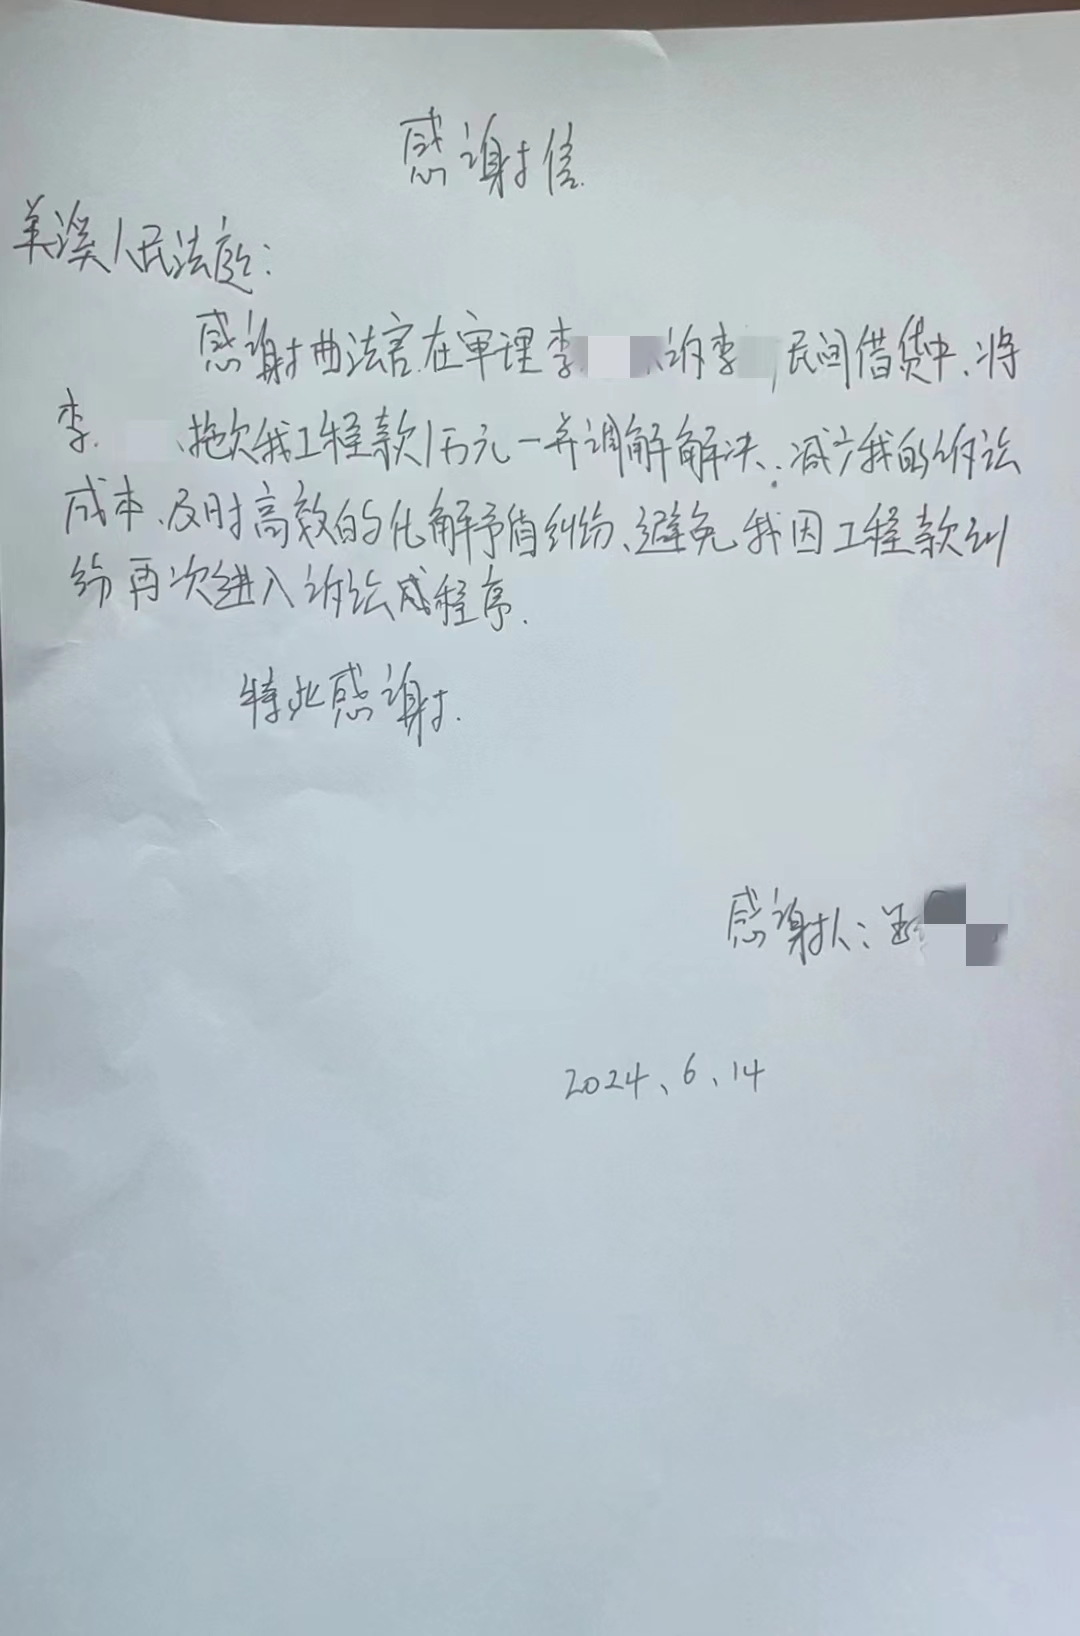 感谢信
美溪人民法庭：
感谢曲法官在审理李 诉李 民间借贷中、将
李 、拖欠我工程款1万元一并调解解决、减少我的诉讼
成本、及时高效的化解矛盾纠纷、避免我因工程款纠
纷再次进入诉讼成程序.
特此感谢.
感谢人：
2024、6、14